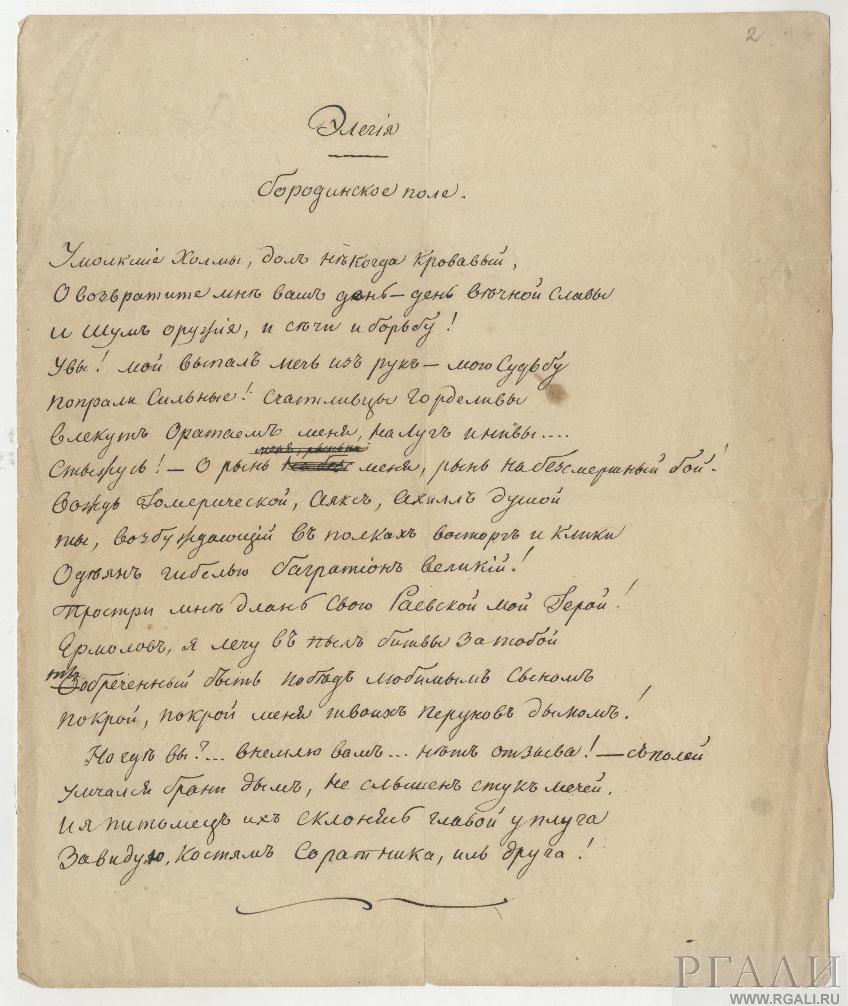 2
Элегія
Бородинское поле.
Умолкшіе Холмы, долъ нѣкогда Кровавый,
О возвратите мнѣ вашъ день – день вѣчной Славы
И Шумъ оружія, и сѣчи и борьбу!
Увы! мой выпалъ мечь изъ рукъ – мою Судьбу
попрали Сильные! Счастливцы Горделивы
влекутъ Оратаемъ меня, на Лугъ и нивы....
меня, рынь на
Стыжусь! – О рынь на без меня, рынь на безсмертный бой!
Вождь Гомерической, Аяксъ, Ахиллъ душой
ты, возбуждающій въ полкахъ восторгъ и Клики
Одѣянъ гибелью Багратіонъ великій!
Простри мнѣ длань Свою Раевской мой Герой!
Ермоловъ, я лечу въ пылъ битвы За тобой
О обреченный быть побѣдъ любимымъ Сыномъ
покрой, покрой меня твоихъ перуновъ дымомъ!
Но гдѣ вы?... внемлю вамъ... нѣтъ отзыва! – съ полей
Умчался брани дымъ, не слышенъ стукъ мечей.
И я питомецъ ихъ склонясь главой у плуга
Завидую, Костямъ Соратника, иль друга!
РГАЛИ
WWW.RGALI.RU